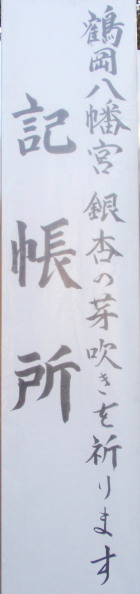 鶴岡八幡宮 銀杏の芽吹きを祈ります
記帳所